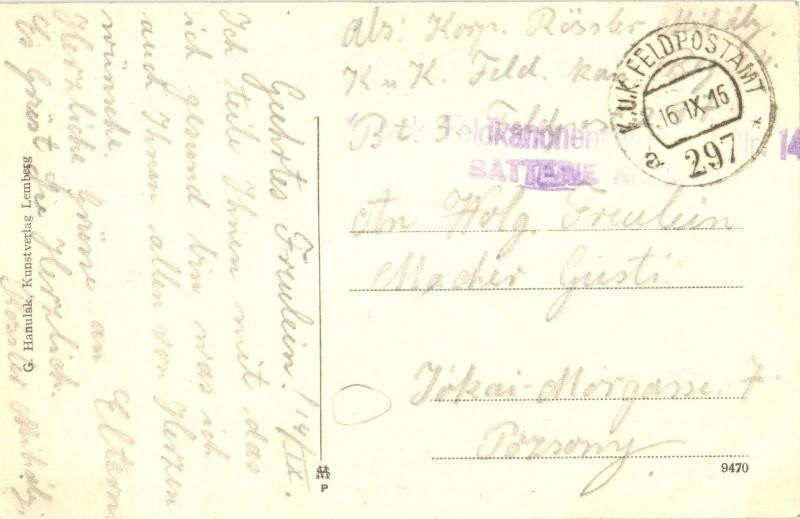 Geehrtes Freulein! 14/IX.
Ich teile Ihnen mit das
ich gesund bin was ich
auch Ihnen allen von Herzen
wünsche.
Herzliche Grüsse an Eltern
Es Grüst Sie Herzlich.
Rössler Mihály
G. Hanulak, Kunstverlag Lemberg
Abs: Korp. Rössler Mihály.
K u K. Feld. kan.
Bt. 3
K.U.K. FELDPOSTAMT
16. IX. 16
297
Feldkanonen Nr. 14
BATTERIE Nr.
An Wolg. Freulein
Macher Gusti
Jókai-Mórgasse. 7
Pozsony
P
9470